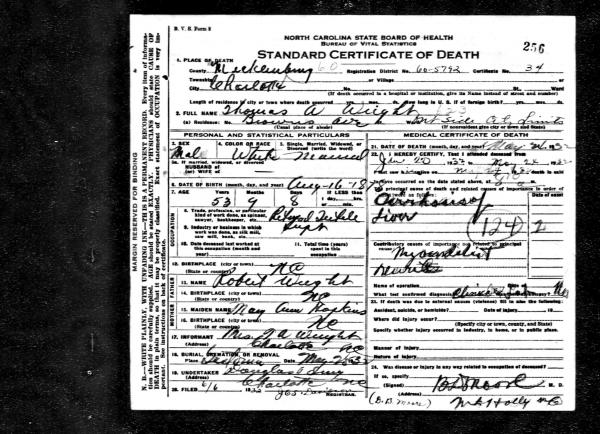 B. V. S. Form 8
NORTH CAROLINA STATE BOARD OF HEALTH
BUREAU OF VITAL STATISTICS
STANDARD CERTIFICATE OF DEATH
256
1. PLACE OF DEATH
County Mecklenburg Registration District No. 60-5792 Certificate No. 34
Township or Village
City Charlotte No. St. Ward
(If death occurred in a hospital or institution, give its Name instead of street and number)
Length of residence in city or town where death occurred yrs. mos. ds. How long in U. S. if of foreign birth? yrs. mos. ds.
2. FULL NAME Thomas A. Wright
(a) Residence: No. Browns ave Out Side City Limits
(Usual place of abode) (If nonresident give city or town and State)
PERSONAL AND STATISTICAL PARTICULARS
3. SEX 4. COLOR OR RACE 5. Single, Married, Widowed, or Divorced (write the word)
Mal White Married
5a. If married, widowed, or divorced
HUSBAND of
(or) WIFE of
6. DATE OF BIRTH (month, day, and year) Aug-16-187
7. AGE Years Months Days If LESS than
53 9 8
8. Trade, profession, or particular kind of work done, as spinner, sawyer, bookkeeper, etc. Supt
9. Industry or business in which work was done, as silk mill, saw mill, bank, etc.
10. Date deceased last worked at this occupation (month and year)
11. Total time (years) spent in this occupation
OCCUPATION
12. BIRTHPLACE (city or town)
(State or country) NC
FATHER
13. NAME Robert Wright
14. BIRTHPLACE (city or town)
(State or country) NC
MOTHER
15. MAIDEN NAME May Ann Hopkins
16. BIRTHPLACE (city or town)
(State or country) NC
17. INFORMANT Mrs. T. A. Wright
(Address) Charlotte NC
18. BURIAL, CREMATION, OR REMOVAL
Place Date May 25 32
19. UNDERTAKER Douglas & Sing
(Address) Charlotte NC
20. FILED 6/6 1932
REGISTRAR.
MEDICAL CERTIFICATE OF DEATH
21. DATE OF DEATH (month, day, and year) May 24 1932
22. I HEREBY CERTIFY, That I attended deceased from
Jan 20 1932 to May 24 1932
I last saw h alive on
have occurred on the date stated above, at
The principal cause of death and related causes of importance in order of onset were as follows:
Cirrhosis of
Liver
(124)
Contributory causes of importance not related to principal cause:
Myocarditis
Neuritis
Name of operation
What test confirmed diagnosis? Clinical Was there an autopsy? No
23. If death was due to external causes (violence) fill in also the following:
Accident, suicide, or homicide? Date of injury 19
Where did injury occur?
(Specify city or town, county, and State)
Specify whether injury occurred in industry, in home, or in public place.
Manner of injury
Nature of injury
24. Was disease or injury in any way related to occupation of deceased?
If so, specify
(Signed) B D Moore M. D.
(Address) Mt Holly NC
(B.D. Moore)
MARGIN RESERVED FOR BINDING
N. B.—WRITE PLAINLY, WITH UNFADING INK—THIS IS A PERMANENT RECORD. Every item of information should be carefully supplied. AGE should be stated EXACTLY. PHYSICIANS should state CAUSE OF DEATH in plain terms, so that it may be properly classified. Exact statement of OCCUPATION is very important. See instructions on back of certificate.